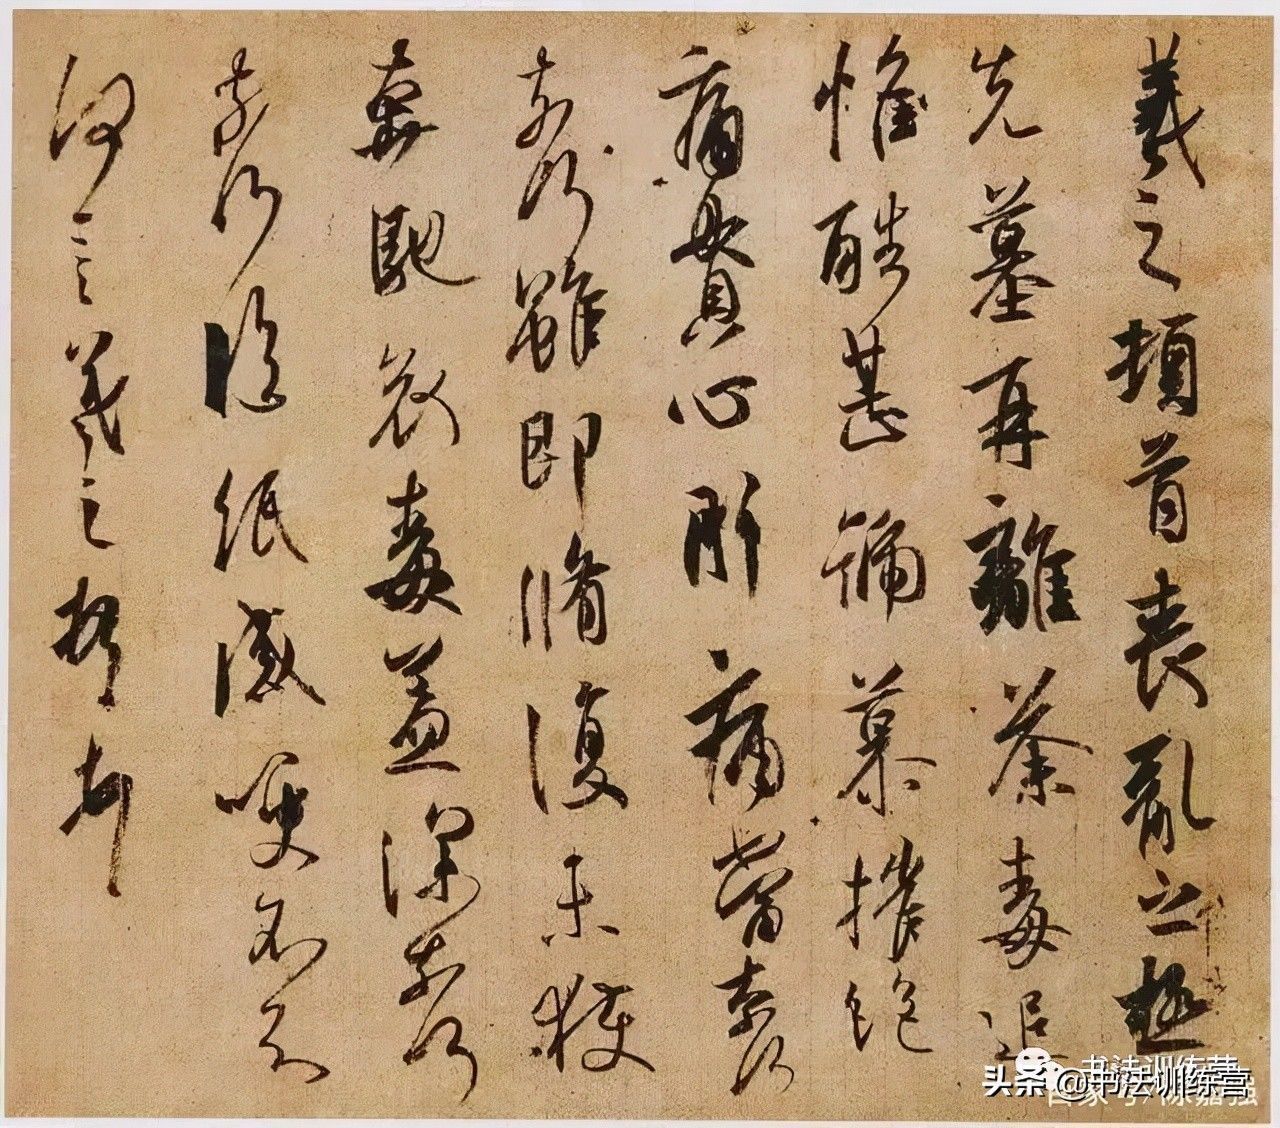 羲之頓首喪亂之極
先墓再離荼毒追
惟酷甚號慕摧絕
痛貫心肝痛當奈何
奈何雖即脩復未獲
奔馳哀毒益深奈何
奈何臨紙感哽不知
何言羲之頓首
头条 @书法训练营
书法训练营